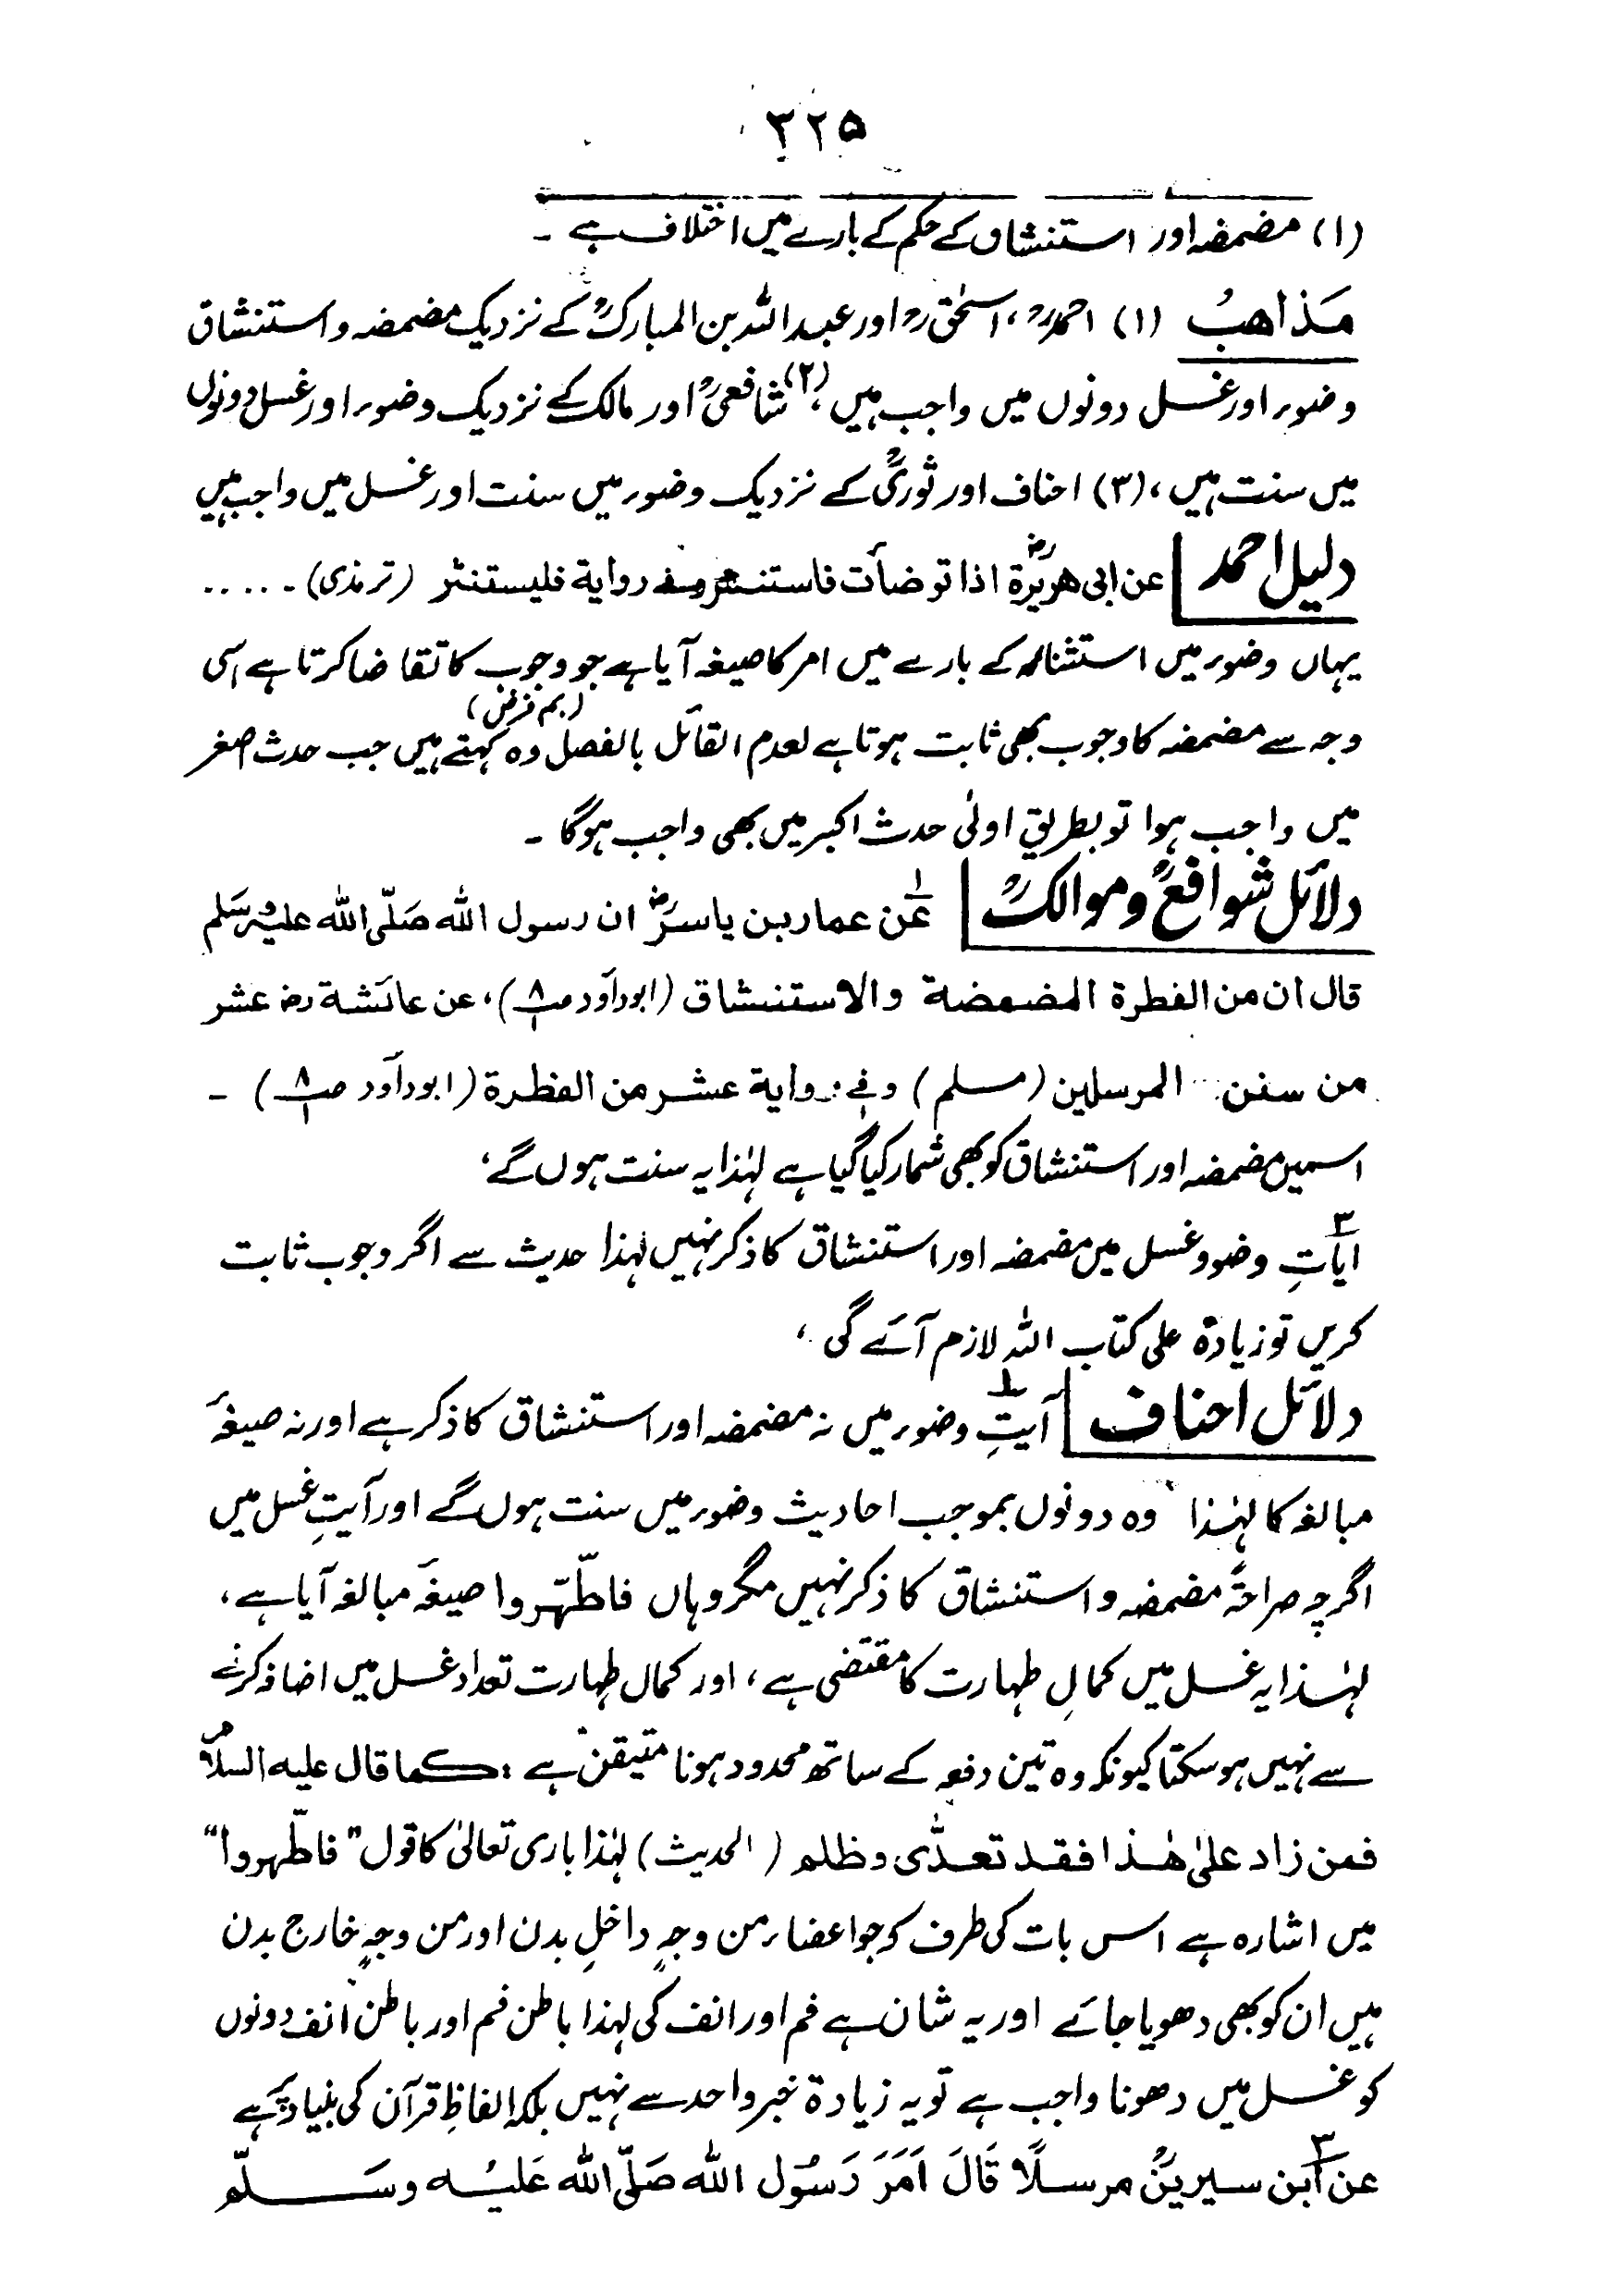 ۳۲۵
(۱) مضمضہ اور استنشاق کے حکم کے بارے میں اختلاف ہے ۔
مَذاھبُ (۱) احمدؒ، اسحٰقؒ اور عبداللہ بن المبارکؒ کے نزدیک مضمضہ و استنشاق
وضوء اور غسل دونوں میں واجب ہیں ، (۲) شافعیؒ اور مالکؒ کے نزدیک وضوء اور غسل دونوں
میں سنت ہیں ، (۳) احناف اور ثوریؒ کے نزدیک وضوء میں سنت اور غسل میں واجب ہیں
دلیل احمد عن ابی ھریرۃؓ اذا توضأت فاستنثر وفی روایۃ فلیستنثر (ترمذی) ۔ ۔۔۔۔
یہاں وضوء میں استنثار کے بارے میں امر کا صیغہ آیا ہے جو وجوب کا تقاضا کرتا ہے اسی
(بم فرض)
وجہ سے مضمضہ کا وجوب بھی ثابت ہوتا ہے لعدم القائل بالفصل وہ کہتے ہیں جب حدث اصغر
میں واجب ہوا تو بطریق اولیٰ حدث اکبر میں بھی واجب ہوگا ۔
دلائل شوافعؒ و موالکؒ ۱ عَن عمار بن یاسرؓ ان رسول اللہ صَلّی اللہ علیہ وسَلم
قال ان من الفطرۃ المضمضۃ والاستنشاق (ابوداؤد ص ۸/۱) ، عن عائشۃ رض عشر
من سنن المرسلین (مسلم) وفی روایۃ عشر من الفطرۃ (ابوداؤد ص ۸/۱) ۔
اسمیں مضمضہ اور استنشاق کو بھی شمار کیا گیا ہے لہٰذا یہ سنت ہوں گے ،
۳ ایاتِ وضو و غسل میں مضمضہ اور استنشاق کا ذکر نہیں لہذا حدیث سے اگر وجوب ثابت
کریں تو زیادۃ علی کتاب اللہ لازم آئے گی ،
دلائل احناف ۱ آیتِ وضوء میں نہ مضمضہ اور استنشاق کا ذکر ہے اور نہ صیغہٴ
مبالغہ کا لہٰذا وہ دونوں بموجب احادیث وضوء میں سنت ہوں گے اور آیتِ غسل میں
اگرچہ صراحۃً مضمضہ و استنشاق کا ذکر نہیں مگر وہاں فاطّہّروا صیغہٴ مبالغہ آیا ہے ،
لہٰذا یہ غسل میں کمالِ طہارت کا مقتضی ہے ، اور کمال طہارت تعداد غسل میں اضافہ کرنے
سے نہیں ہوسکتا کیونکہ وہ تین دفعہ کے ساتھ محدود ہونا متیقن ہے ، کما قال علیہ السلام
فمن زاد علیٰ ھٰذا فقد تعدّی وظلم (الحدیث) لہٰذا باری تعالیٰ کا قول ”فاطّہروا“
میں اشارہ ہے اس بات کی طرف کہ جو اعضاء من وجہٍ داخلِ بدن اور من وجہٍ خارج بدن
ہیں ان کو بھی دھویا جائے اور یہ شان ہے فم اور انف کی لہذا باطن فم اور باطن انف دونوں
کو غسل میں دھونا واجب ہے تو یہ زیادۃ خبر واحد سے نہیں بلکہ الفاظِ قرآن کی بنیاد پر ہے
۳ عن ابن سیرینؒ مرسلًا قَالَ اَمَرَ رَسُول اللہ صَلّی اللہ عَلیْہ وسَلّم